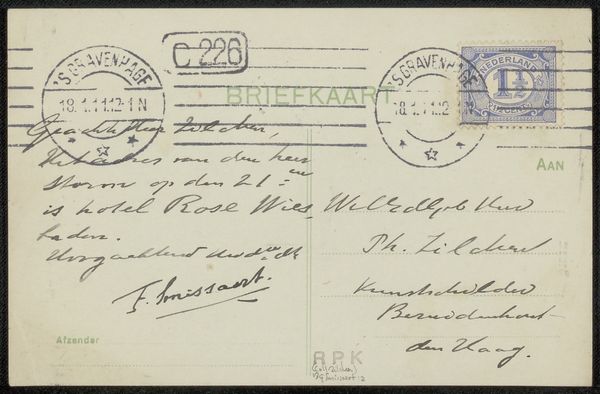 'S GRAVENHAGE
18.1.11.12-1N
C 226
'S GRAVENHAGE
18.1.11.12-1N
NEDERLAND
1½
CENT
BRIEFKAART
AAN
Geachte Heer Zilcken,
Het adres van den heer
Storm op den 21en
is hotel Rose Wies-
baden.
Hoogachtend
F. Smissaert.
WelEdelgeb Heer
Ph. Zilcken
Kunstschilder
Bezuidenhout
den Haag.
Afzender
RPK
(coll. Zilcken)